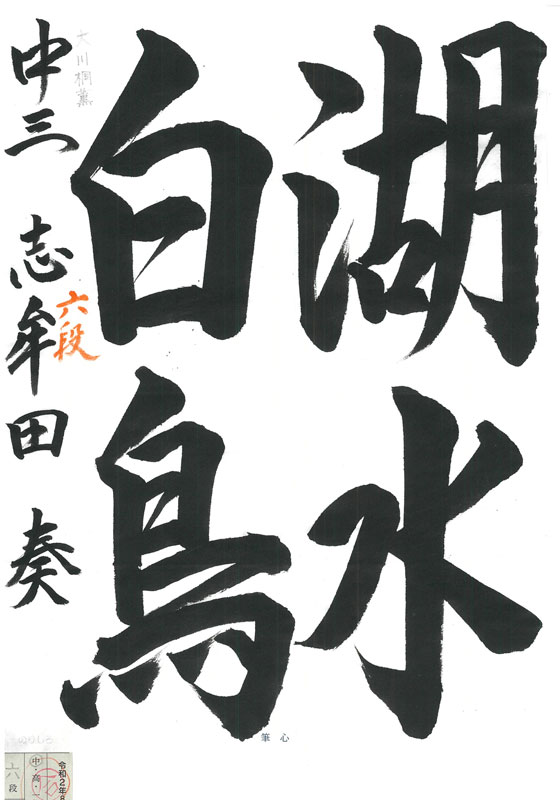 湖水
白鳥
大川桐薫
六段
中三 志牟田 奏
筆心
令和2年8
中・高・一
六段